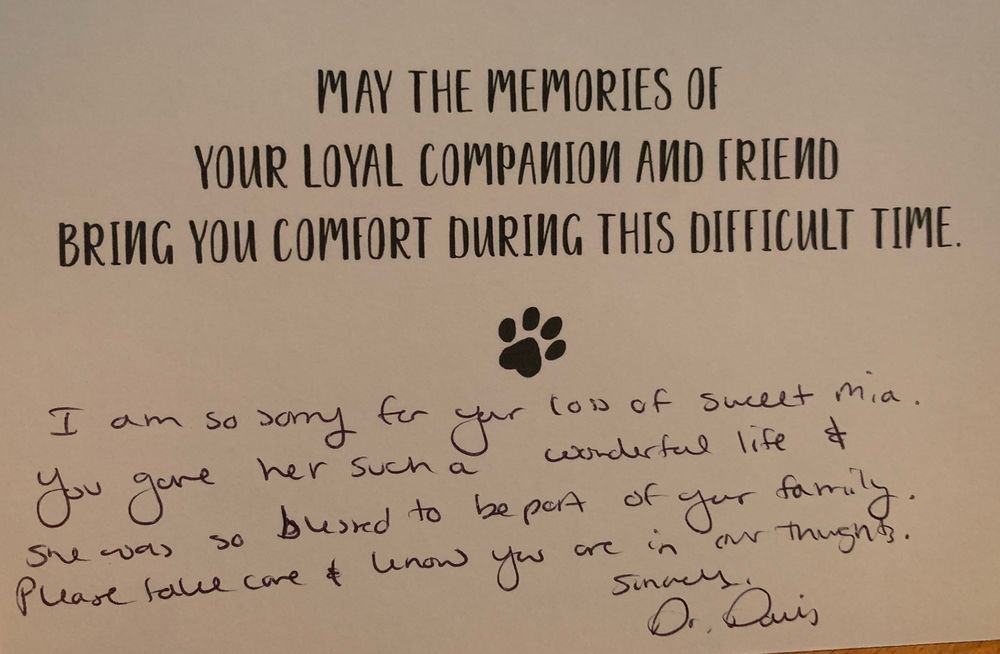 MAY THE MEMORIES OF
YOUR LOYAL COMPANION AND FRIEND
BRING YOU COMFORT DURING THIS DIFFICULT TIME.
I am so sorry for your loss of sweet Mia.
You gave her such a wonderful life &
she was so blessed to be part of your family.
Please take care & know you are in our thoughts.
Sincerely,
Dr. Davis